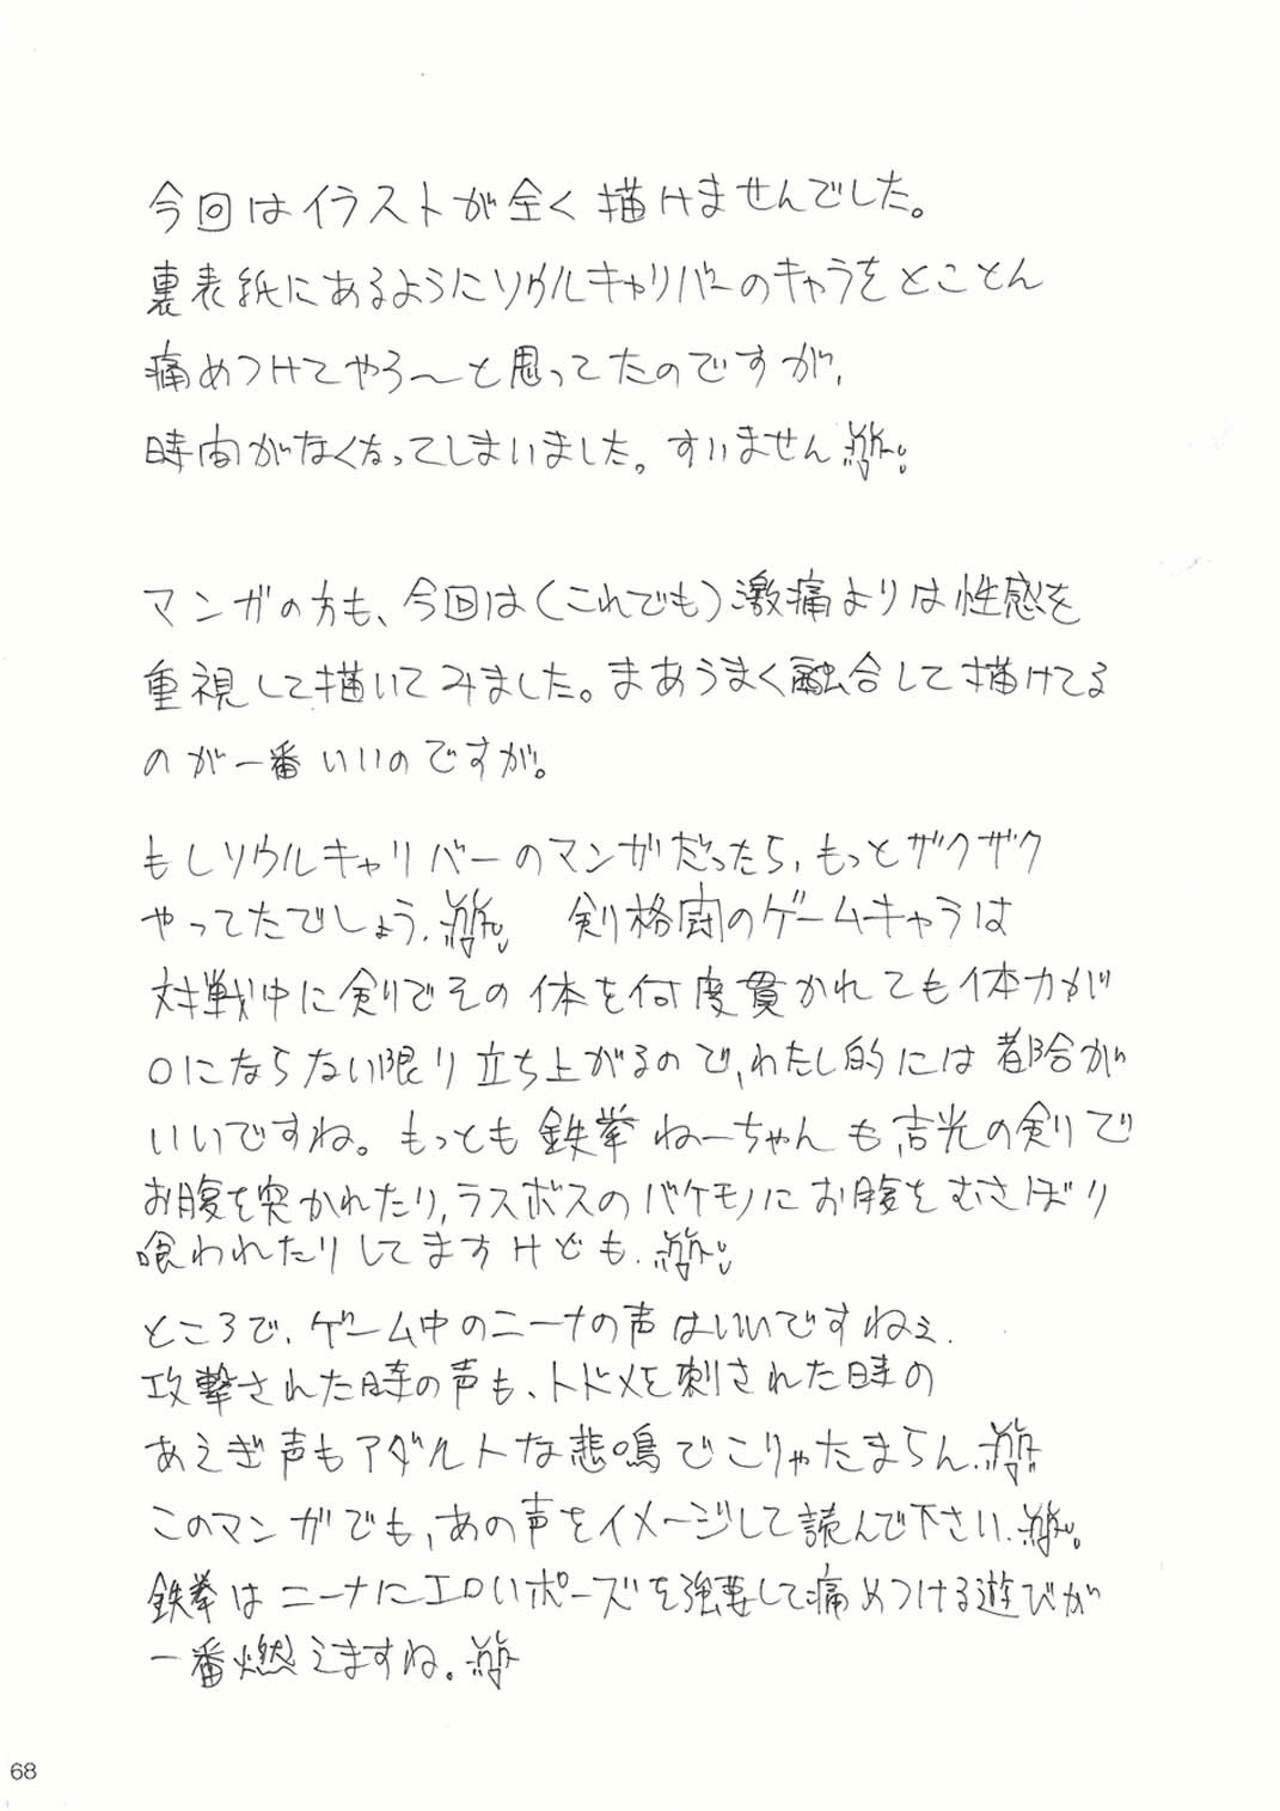 今回はイラストが全く描けませんでした。
裏表紙にあるようにソウルキャリバーのキャラをとことん
痛めつけてやろ〜と思ってたのですが、
時間がなくなってしまいました。すいません
マンガの方も、今回は（これでも）激痛よりは性感を
重視して描いてみました。まあうまく融合して描けてる
のが一番いいのですが。
もしソウルキャリバーのマンガだったら、もっとザクザク
やってたでしょう. 剣格闘のゲームキャラは
対戦中に剣でその体を何度貫かれても体力が
0にならない限り立ち上がるので、わたし的には都合が
いいですね。もっとも鉄拳ねーちゃんも、吉光の剣で
お腹を突かれたり、ラスボスのバケモノにお腹をむさぼり
喰われたりしてますけども.
ところで、ゲーム中のニーナの声はいいですねぇ.
攻撃された時の声も、トドメを刺された時の
あえぎ声もアダルトな悲鳴でこりゃたまらん.
このマンガでも、あの声をイメージして読んで下さい.
鉄拳はニーナにエロいポーズを強要して痛めつける遊びが
一番燃えますね.
68